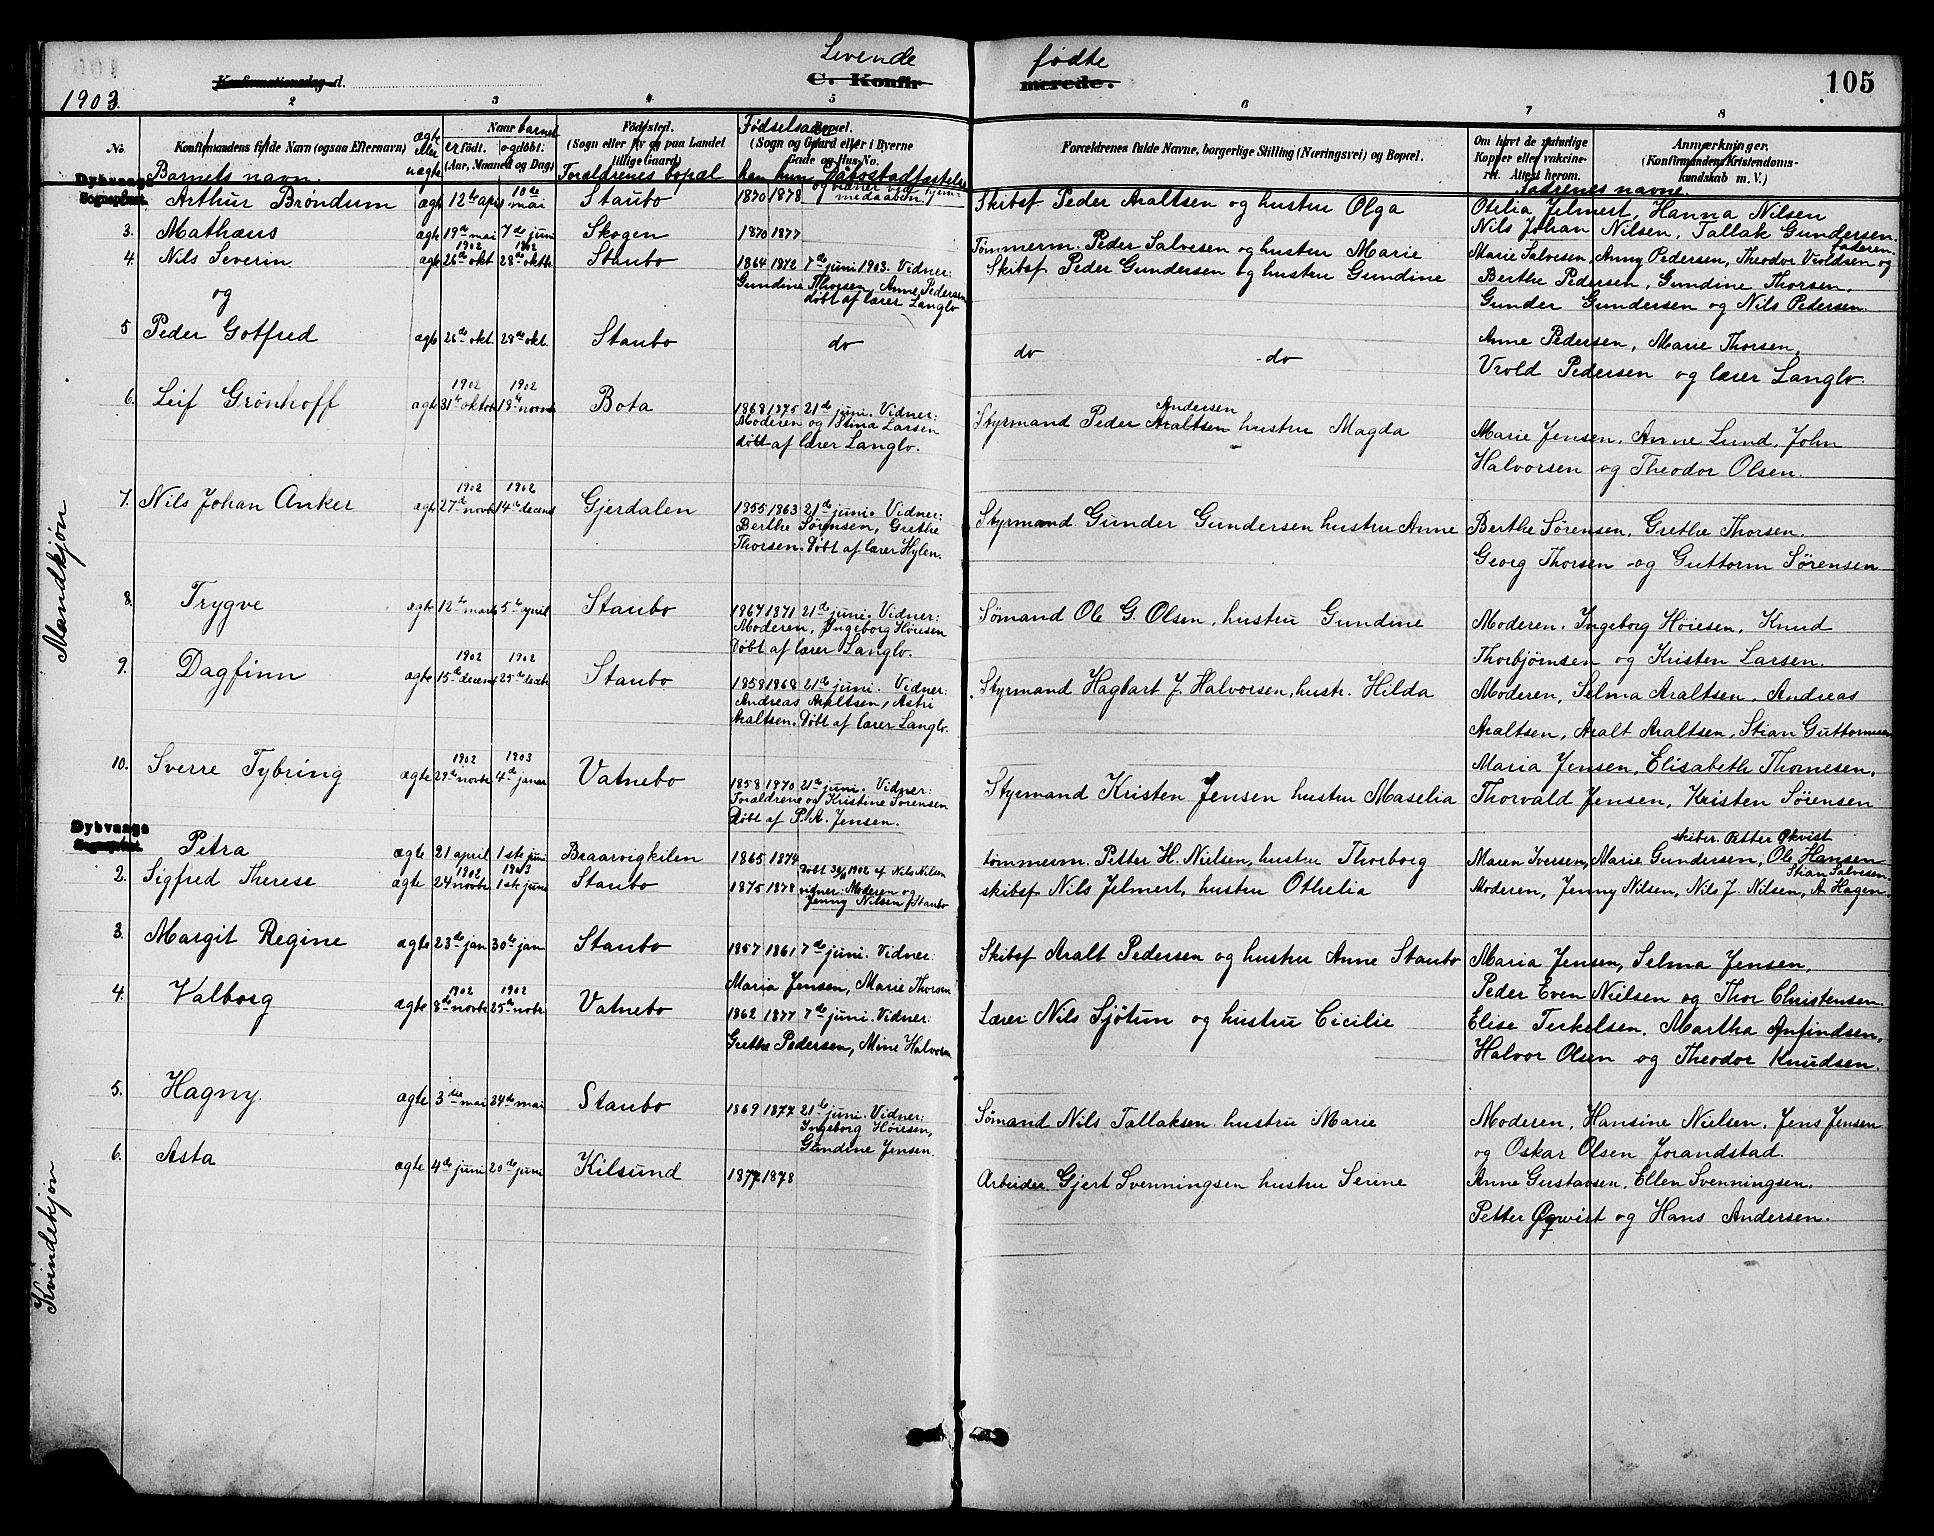 Levende fødte
Konfirmationsdag d. C. Konfirmerede. 105
1903.
2 3 4 5 6 7 8
No. Konfirmandens fulde Navn (ogsaa Efternavn) ægte eller uægte Naar barnet er født. og døbt. (Aar, Maaned og Dag) Fødested. (Sogn eller By og paa Landet tillige Gaard) Fødselsaar Bopæl. (Sogn og Gaard eller i Byerne Gade og Hus-No. Forældrenes fulde Navne, borgerlige Stilling (Næringsvei) og Bopæl. Om havt de naturlige Kopper eller vaccineret. Attest herom. Anmærkninger. (Konfirmandens Kristendomskundskab m. V.)
Barnets navn. Forældrenes bopæl han hun Daabsstadfæstelse og vidner ved hjemmedaaben. Fadrenes navne.
Dybvaags Sogneprest.
Arthur Brøndum ægte 12te apr 10de mai Staubo 1870 1878 Skibsf. Peder Araltsen og hustru Olga Otilia Jelmert, Hanna Nilsen
Nils Johan Nilsen, Tallak Gundersen.
3. Mathæus ægte 19de mai 7de juni Skogen 1870 1877 Tømmerm. Peder Salvesen og hustru Marie Marie Salvesen, Anny Pedersen, Theodor Vroldsen og Faderen
4. Nils Severin ægte 1902 26de okt. 1902 28de oktb Staubo 1864 1872 7de juni 1903. Vidner: Skibsf Peder Gundersen og hustru Gundine Berthe Pedersen, Gundine Thorsen.
Gundine Thorsen, Anne Pedersen
døbt af lærer Langlo Gunder Gundersen og Nils Pedersen.
og
5 Peder Gotfred ægte 26de okt. 28de okt. Staubo do do do Anne Pedersen, Marie Thorsen,
Vrold Pedersen og lærer Langlo.
6. Leif Grönhoff ægte 1902 31te oktob 1902 18de novbr Bota 1868 1875 21de juni. Vidner: Styrmand Peder Araltsen Andersen hustru Magda Marie Jensen, Anne Lund, John
Moderen og Stina Larsen
døbt af lærer Langlo. Halvorsen og Theodor Olsen.
7. Nils Johan Anker ægte 1902 27de novbr 1902 14de decemb Gjerdalen 1855 1863 21de juni. Vidner: Styrmand Gunder Gundersen hustru Anne Berthe Sørensen, Grethe Thorsen.
Berthe Sørensen, Grethe
Thorsen. Døbt af lærer Hylen. Georg Thorsen og Guttorm Sørensen
8. Trygve ægte 12te marts 5te april Staubo 1867 1871 21de juni. Vidner: Sømand Ole G. Olsen, hustru Gundine Moderen. Ingeborg Høiesen, Knud
Moderen, Ingeborg Høiesen
Døbt af lærer Langlo. Thorbjørnsen og Kristen Larsen.
9. Dagfinn ægte 1902 15de decemb 1902 25de decbr Staubo 1858 1868 21de juni. Vidner: Styrmand Hagbart J. Halvorsen, hustr. Hilda Moderen, Selma Araltsen. Andreas
Andreas Araltsen, Astri
Araltsen. Døbt af lærer Langlo. Araltsen, Aralt Araltsen, Stian Guttormsen
10. Sverre Tybring ægte 1902 29de novbr 1903 4de januar Vatnebo 1858 1870 21de juni. Vidner: Styrmand Kristen Jensen hustru Maselia Maria Jensen, Elisabeth Thornesen,
Forældrene og Kristine Sørensen
Døbt af P. A. Jensen. Thorvald Jensen, Kristen Sørensen
Mandkjøn
Dybvaags Sogneprest.
Petra ægte 21 april 1ste juni Braarvigkilen 1865 1874 tømmerm. Petter H. Nielsen, hustru Thorborg Maren Iversen, Marie Gundersen, Ole Hansen skiber. Petter Økvist
2. Sigfred Therese ægte 1902 24 novbr 1903 1ste juni Staubo 1875 1878 Døbt 30/11 1902 af Nils Nilsen skibsf Nils Jelmert, hustru Othelia Moderen, Jenny Nilsen, Nils J. Nilsen, A. Hagen. Stian Salvesen
vidner: Moderen og
Jenny Nilsen Staubo
3. Margit Regine ægte 23de jan 30te jan Staubo 1857 1861 7de juni. Vidner: Skibsf Aralt Pedersen og hustru Anne Staubo Maria Jensen, Selma Jensen,
Maria Jensen, Marie Thorsen Peder Even Nielsen og Thor Christensen.
4. Valborg ægte 1902 8de novbr 1902 25de novbr Vatnebo 1862 1877 7de juni. Vidner: Lærer Nils Sjøtun og hustru Cicilie Elise Terkelsen, Martha Anfindsen,
Grethe Pedersen, Mine Halvorsen Halvor Olsen og Theodor Knudsen.
5. Hagny. ægte 3die mai 24de mai Staubo 1869 1877 21de juni. Vidner: Sømand Nils Tallaksen hustru Marie Moderen, Hansine Nielsen, Jens Jensen
Ingeborg Høiesen,
Gundine Jensen. og Oskar Olsen Jorandstad.
6. Asta ægte 4de juni 20de juni Kilsund 1877 1878 Arbeider. Gjert Svenningsen hustru Serine Anne Gustavsen, Ellen Svenningsen.
Petter Øqvist og Hans Andersen.
Kvindekjøn